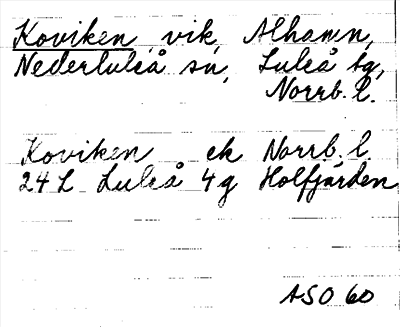 Koviken, vik, Alhamn,
Nederluleå sn, Luleå tg,
Norrb. l.
Koviken ek Norrb. l
24 L Luleå 4g Holfjärden
ASO 60